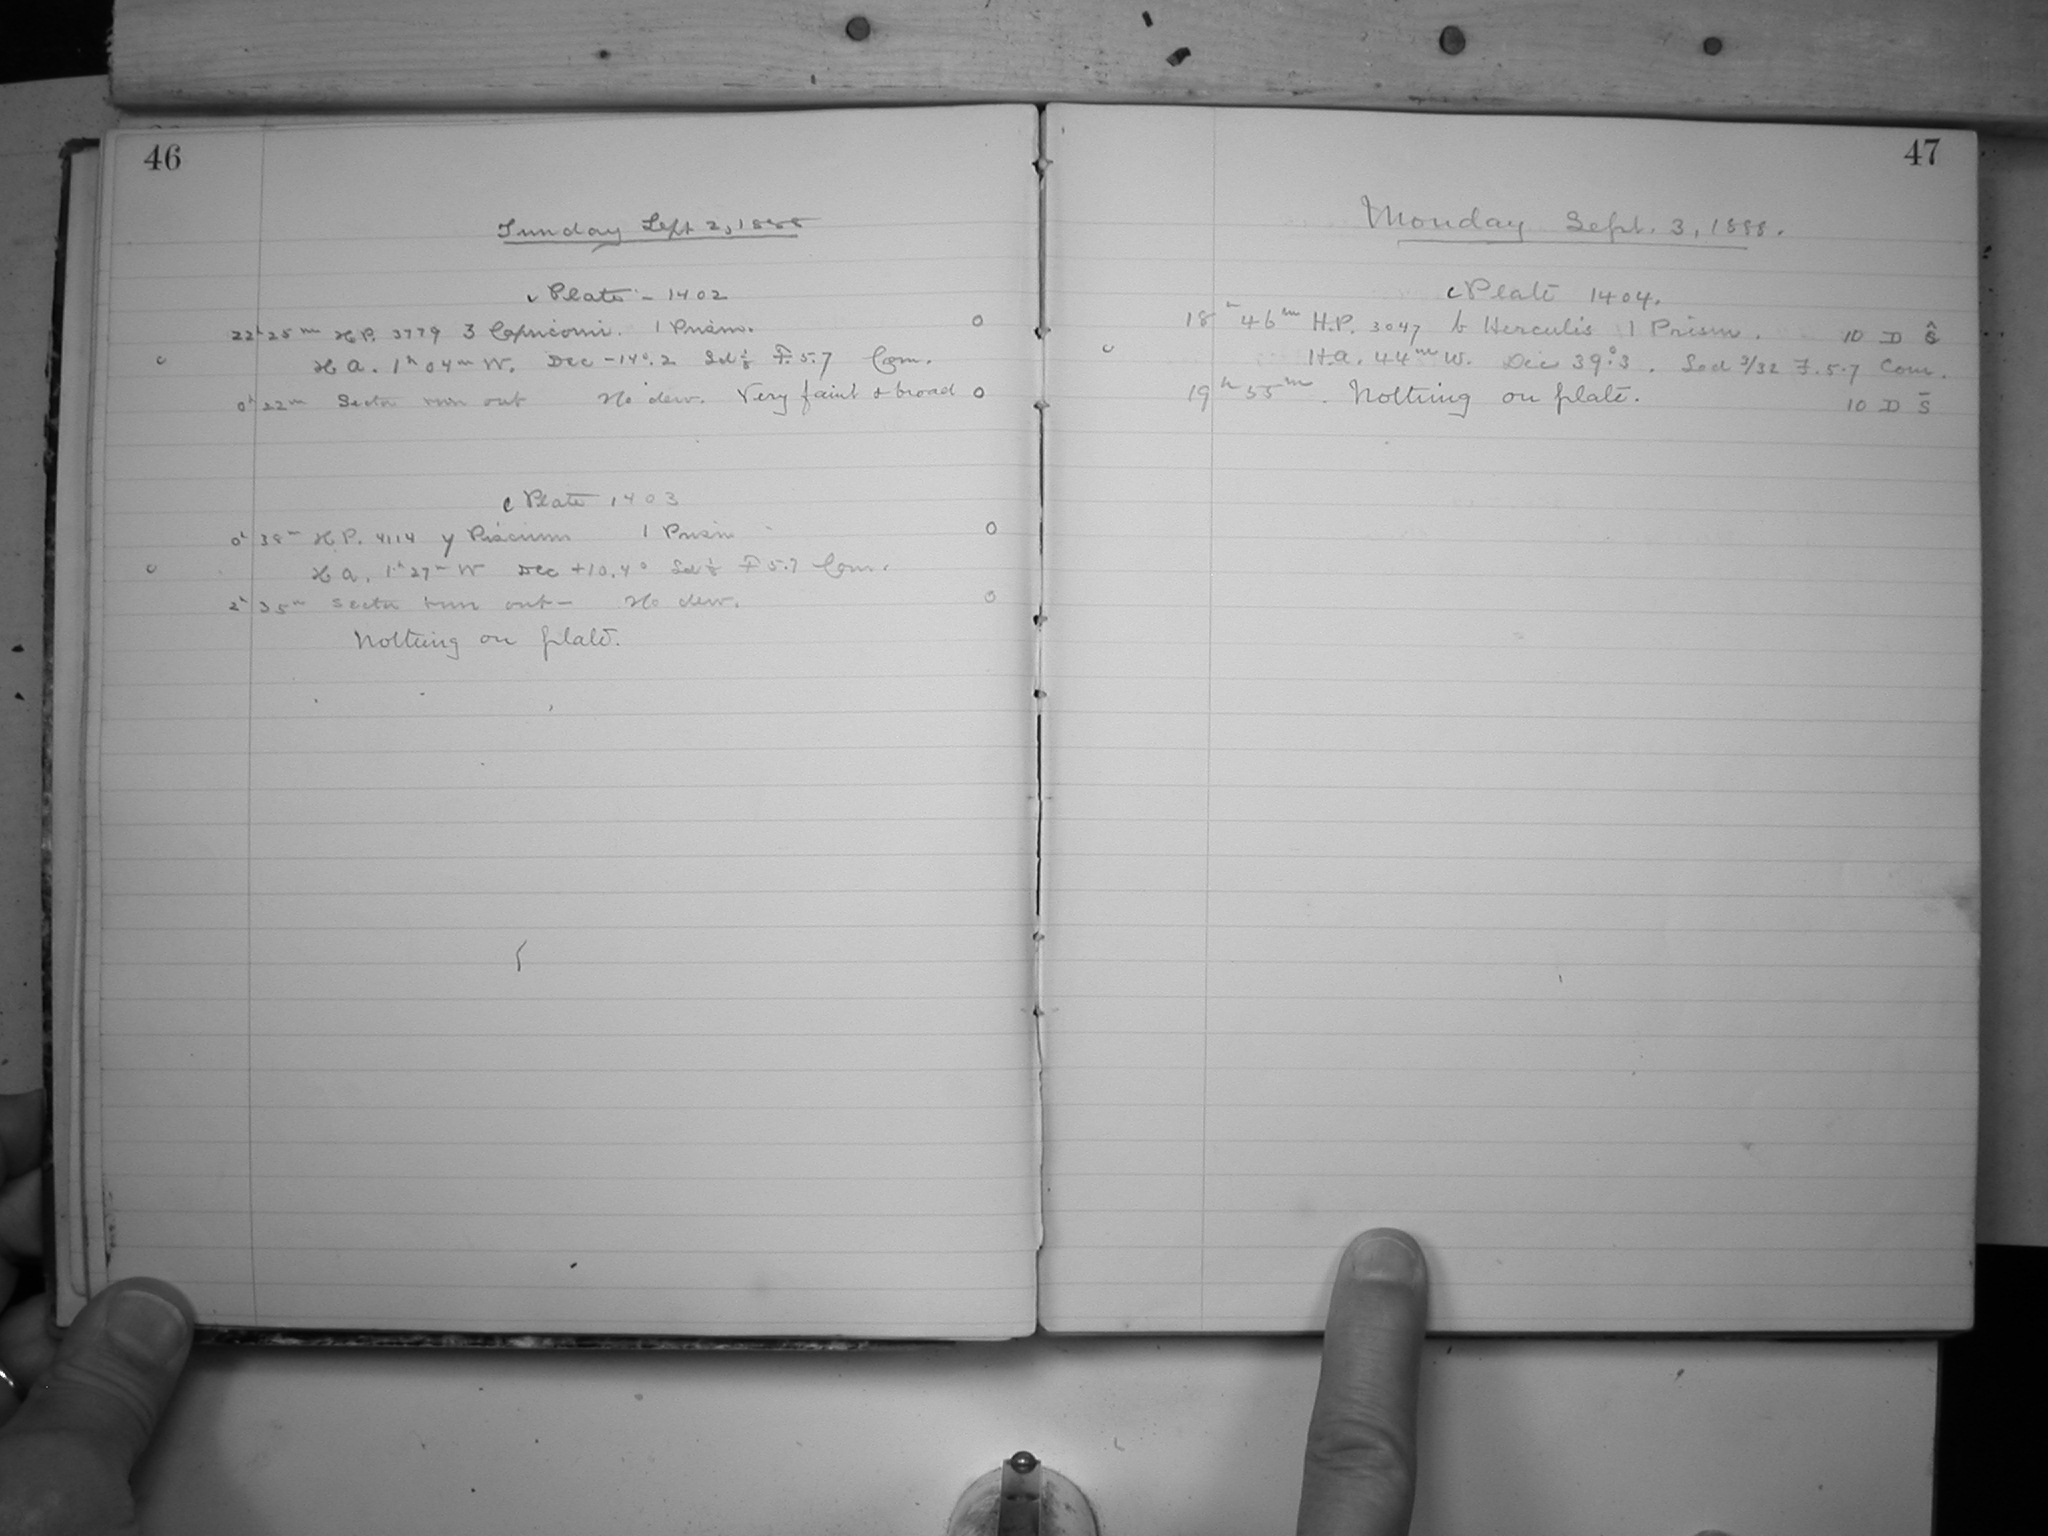 46
Sunday Sept 2, 1888
c Plate - 1402
22h 25m H.P. 3779 3 Capricorni. 1 Prism. 0
c H.A. 1h 04m W. Dec -14°.2 Sed 1/8 F. 5.7 Com.
0h 22m Sectr run out No dew. Very faint & broad 0
c Plate 1403
0h 38m H.P. 4114 y Piscium 1 Prism 0
c H.A. 1h 27m W Dec +10.4° Sed 1/8 F 5.7 Com.
2h 35m Sectr run out - No dew. 0
Nothing on plate.
47
Monday Sept. 3, 1888.
c Plate 1404.
18h 46m H.P. 3047 b Herculis 1 Prism. 10 D Ŝ
c H.A. 44m W. Dec 39.°3. Sed 3/32 F. 5.7 Com.
19h 55m. Nothing on plate. 10 D S̄